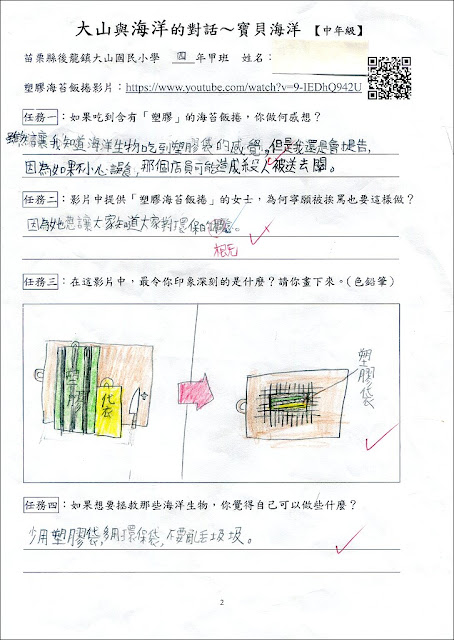 大山與海洋的對話～寶貝海洋 【中年級】
苗栗縣後龍鎮大山國民小學 四 年甲班 姓名：
塑膠海苔飯捲影片：https://www.youtube.com/watch?v=9-IEDhQ942U
任務一：如果吃到含有「塑膠」的海苔飯捲，你做何感想？
雖然讓我知道海洋生物吃到塑膠袋的感覺，但是我還是會提告，
因為如果不小心誤食，那個店員可能造成殺人被送去關。
任務二：影片中提供「塑膠海苔飯捲」的女士，為何寧願被挨罵也要這樣做？
因為她想讓大家知道大家對環保的
概念
任務三：在這影片中，最令你印象深刻的是什麼？請你畫下來。(色鉛筆)
塑膠
袋
塑膠袋
任務四：如果想要拯救那些海洋生物，你覺得自己可以做些什麼？
少用塑膠袋，多用環保袋，不要亂丟垃圾。
2